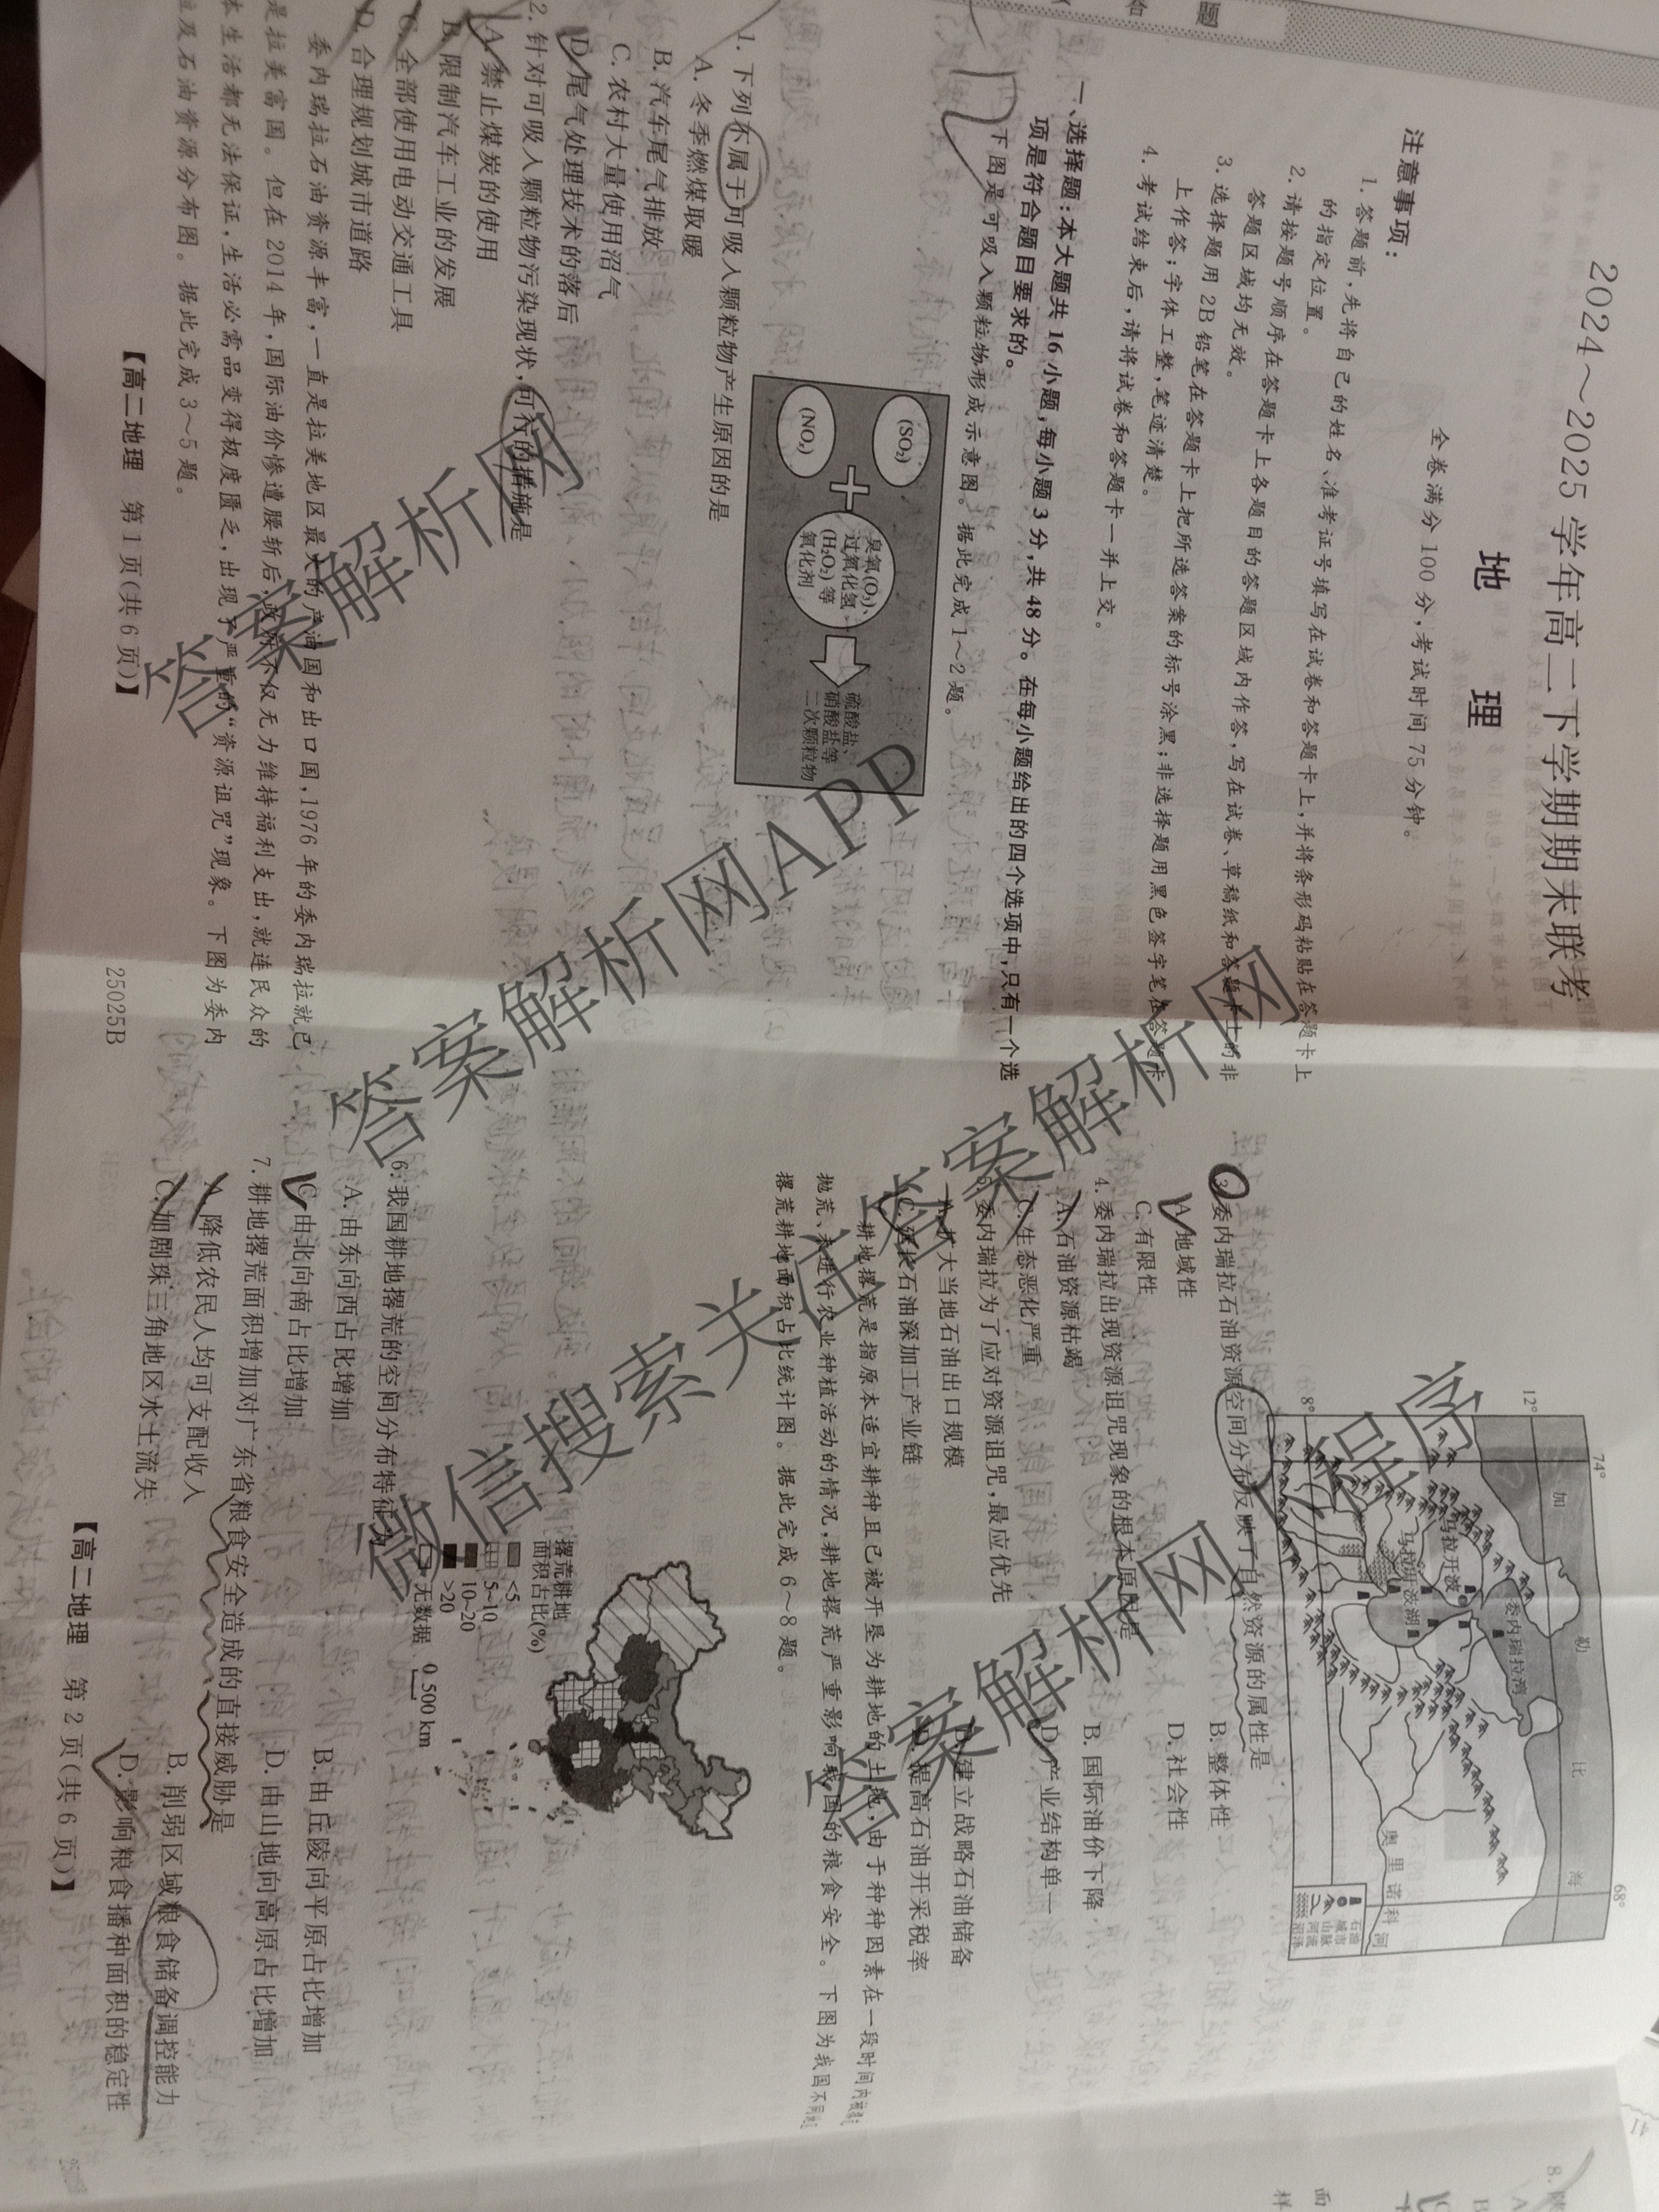 2024～2025学年高二下学期期末联考
地 理
全卷满分100分,考试时间75分钟。
注意事项:
1. 答题前,先将自己的姓名、准考证号填写在试卷和答题卡上,并将条形码粘贴在答题卡上
的指定位置。
2. 请按题号顺序在答题卡上各题目的答题区域内作答,写在试卷、草稿纸和答题卡上的非
答题区域均无效。
3. 选择题用2B铅笔在答题卡上把所选答案的标号涂黑;非选择题用黑色签字笔在答题卡
上作答;字体工整,笔迹清楚。
4. 考试结束后,请将试卷和答题卡一并上交。
一、选择题:本大题共16小题,每小题3分,共48分。在每小题给出的四个选项中,只有一个选
项是符合题目要求的。
下图是可吸入颗粒物形成示意图。据此完成1～2题。
(SO₂)
(NOₓ)
臭氧(O₃)、
过氧化氢
(H₂O₂)等
氧化剂
硫酸盐、
硝酸盐等
二次颗粒物
1. 下列不属于可吸入颗粒物产生原因的是
A. 冬季燃煤取暖
B. 汽车尾气排放
C. 农村大量使用沼气
D. 尾气处理技术的落后
2. 针对可吸入颗粒物污染现状,可行的措施是
A. 禁止煤炭的使用
B. 限制汽车工业的发展
C. 全部使用电动交通工具
D. 合理规划城市道路
委内瑞拉石油资源丰富,一直是拉美地区最大的产油国和出口国,1976年的委内瑞拉就已
是拉美富国。但在2014年,国际油价惨遭腰斩后,政府不仅无力维持福利支出,就连民众的
本生活都无法保证,生活必需品变得极度匮乏,出现了严重的“资源诅咒”现象。下图为委内
及石油资源分布图。据此完成3～5题。
【高二地理 第1页(共6页)】
25025B
74°
68°
12°
8°
加 勒 比 海
委内瑞拉湾
马拉开波
马拉开波湖
奥里诺科河
石油
城市
山脉
河流
沼泽
3. 委内瑞拉石油资源空间分布反映了自然资源的属性是
A. 地域性
B. 整体性
C. 有限性
D. 社会性
4. 委内瑞拉出现资源诅咒现象的根本原因是
A. 石油资源枯竭
B. 国际油价下降
C. 生态恶化严重
D. 产业结构单一
5. 委内瑞拉为了应对资源诅咒,最应优先
A. 扩大当地石油出口规模
B. 建立战略石油储备
C. 延长石油深加工产业链
D. 提高石油开采税率
耕地撂荒是指原本适宜耕种且已被开垦为耕地的土地,由于种种因素在一段时间内被
抛荒、未进行农业种植活动的情况,耕地撂荒严重影响我国的粮食安全。下图为我国不同
撂荒耕地面积占比统计图。据此完成6～8题。
撂荒耕地
面积占比(%)
<5
5~10
10~20
>20
无数据
0 500 km
6. 我国耕地撂荒的空间分布特征为
A. 由东向西占比增加
B. 由丘陵向平原占比增加
C. 由北向南占比增加
D. 由山地向高原占比增加
7. 耕地撂荒面积增加对广东省粮食安全造成的直接威胁是
A. 降低农民人均可支配收入
B. 削弱区域粮食储备调控能力
C. 加剧珠三角地区水土流失
D. 影响粮食播种面积的稳定性
【高二地理 第2页(共6页)】
答案解析网
答案解析网APP
微信搜索关注答案解析网
答案解析网小程序
题
8.
面
样